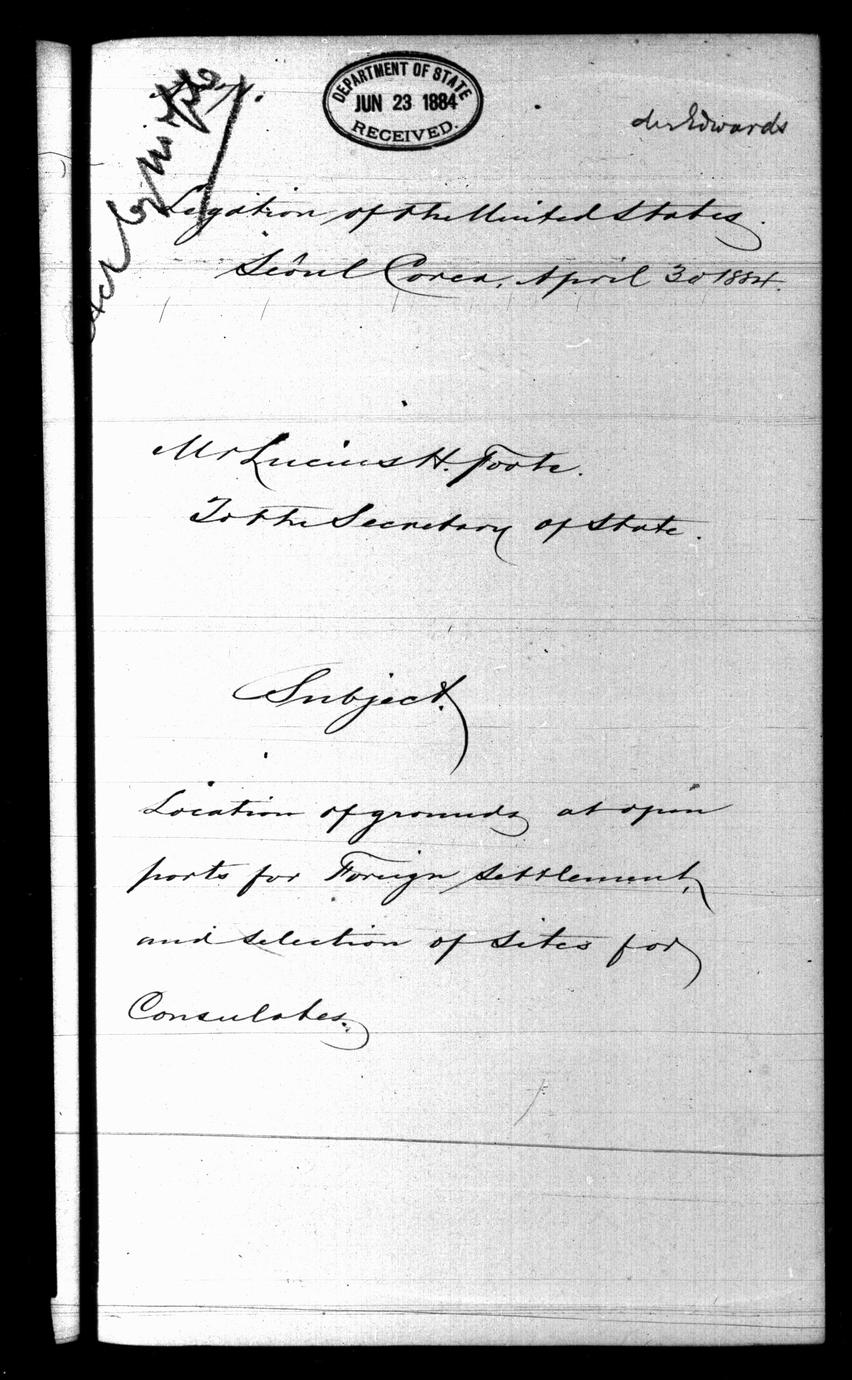 DEPARTMENT OF STATE
JUN 23 1884
RECEIVED.
Edwards
Legation of the United States.
Seoul Corea, April 30 1884.
Mr Lucius H. Foote.
To the Secretary of State.
Subject.
Location of grounds at open
ports for Foreign Settlement,
and selection of sites for
Consulates.